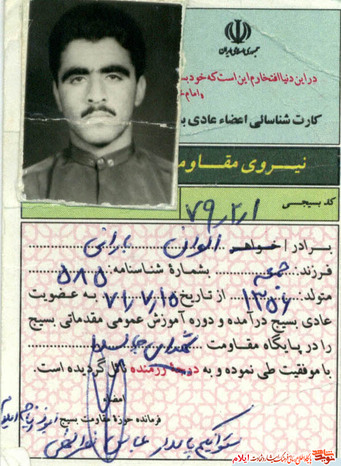 جمهوری اسلامی ایران
در این دنیا افتخارم این است که خود بسـ
«امام
کارت شناسائی اعضاء عادی بـ
نیروی مقاومـ
کد بسیجی ۷۹٫۲٫۱
برادر / خواهر الوان بارانی
فرزند: جمعه بشماره شناسنامه: ۵۸۵
متولد: ۱۳۵۶ از تاریخ ۷۱٫۷٫۱۵ به عضویت
عادی بسیج درآمده و دوره آموزش عمومی مقدماتی بسیج
را در پایگاه مقاومت شهدای
با موفقیت طی نموده و به درجه رزمنده نائل گردیده است.
امضاء
فرمانده حوزه مقاومت بسیج
پاسدار عباس